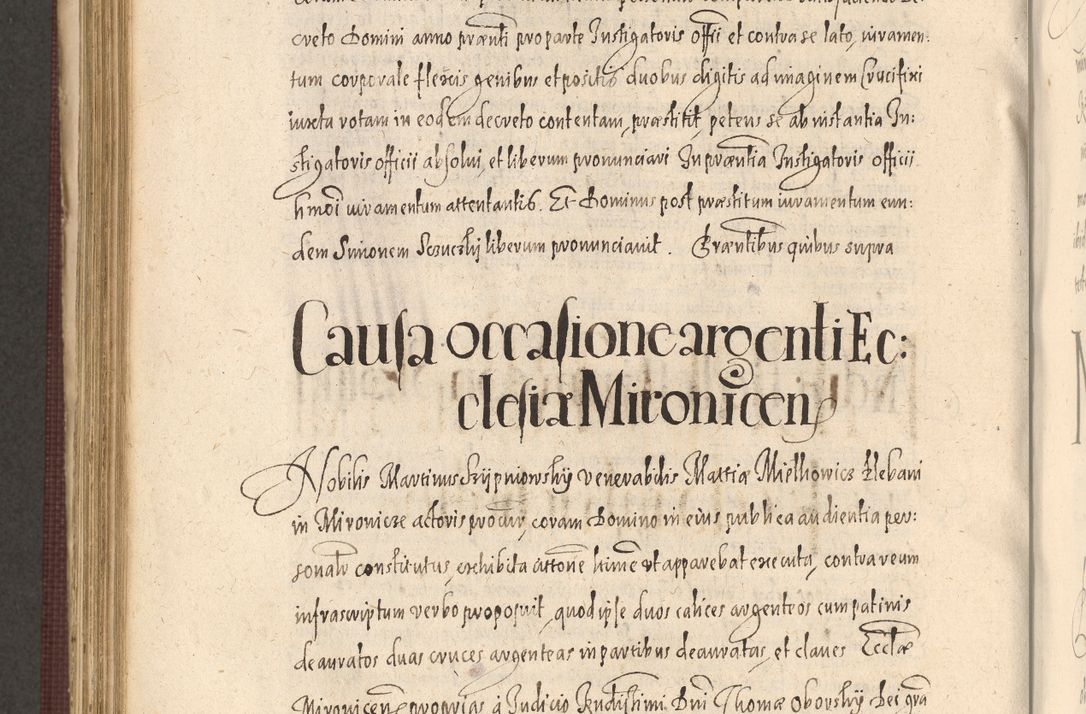 creto Domini anno prænti pro parte Instigatoris offii et contra se lato, iuramen:
tum corporale flexis genibus et positis duobus digitis ad imaginem Crucifixi
iuxta rotam in eodem decreto contentam, præstitit, petens se ab instantia In:
stigatoris officii absolui, et liberum pronunciari In præntia Instigatoris officii
hmoi iuramentum attentantis. Et Dominus post præstitum iuramentum eun:
dem Simonem liberum pronunciauit. Præntibus quibus supra
Causa occasione argenti Ec:
clesiæ Mironicen
Nobilis Martinus Krzÿpniowskÿ venerabilis Mattiæ Mielkowicz Plebani
in Mironicze actoris procur, coram Domino in eius publica audientia per:
sonalr constitutus, exhibita attone himce ut apparebat executa, contra reum
infrascriptum verbo proposuit, quod ipse duos calices argenteos cum patinis
deauratos duas cruces argenteas in partibus deauratas, et claues Ecclæ
Mironicen proprias á Iudicio Rndissimi Dni Thomæ Oborskÿ Dei gra